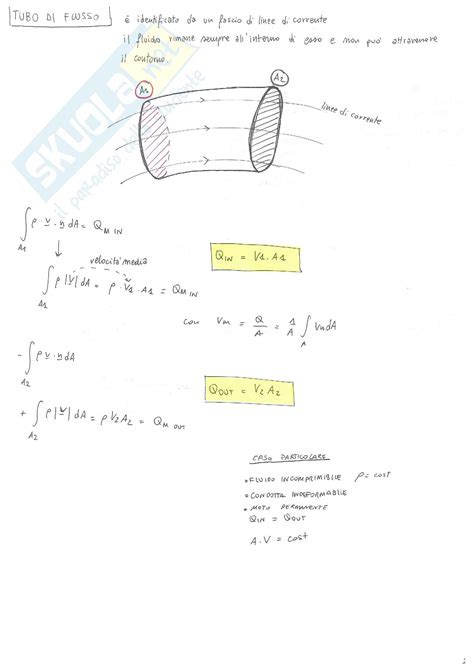 TUBO DI FLUSSO
è identificato da un fascio di linee di corrente
il fluido rimane sempre all'interno di esso e non può attraversare
il contorno.
A1
A2
linee di corrente
SKUOLA.net
il paradiso dello studente
∫A1 ρ v · n dA = QM IN
velocità media
∫A1 ρ |v| dA = ρ · V1 · A1 = QM IN
QIN = V1 · A1
con Vm = Q/A = 1/A ∫A Vn dA
- ∫A2 ρ v · n dA
+ ∫A2 ρ |v| dA = ρ V2 A2 = QM OUT
QOUT = V2 A2
CASO PARTICOLARE
• FLUIDO INCOMPRIMIBILE ρ = cost
• CONDOTTA INDEFORMABILE
• MOTO PERMANENTE
QIN = QOUT
A · V = cost